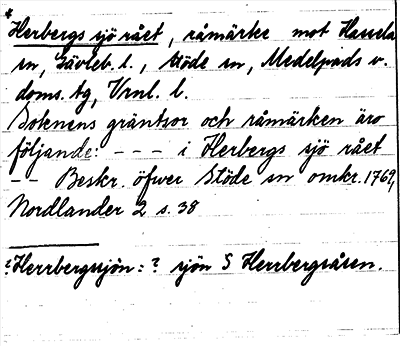 *
Herbergs sjö rået, råmärke mot Hassela
sn, Gävleb. l., Stöde sn, Medelpads v.
doms. tg, Vrnl. l.
Soknens gräntsor och råmärken äro
följande: - - - i Herbergs sjö rået
- - Beskr. öfwer Stöde sn omkr. 1769,
Nordlander 2 s. 38
?Herrbergssjön: ? sjön S Herrbergsåsen.